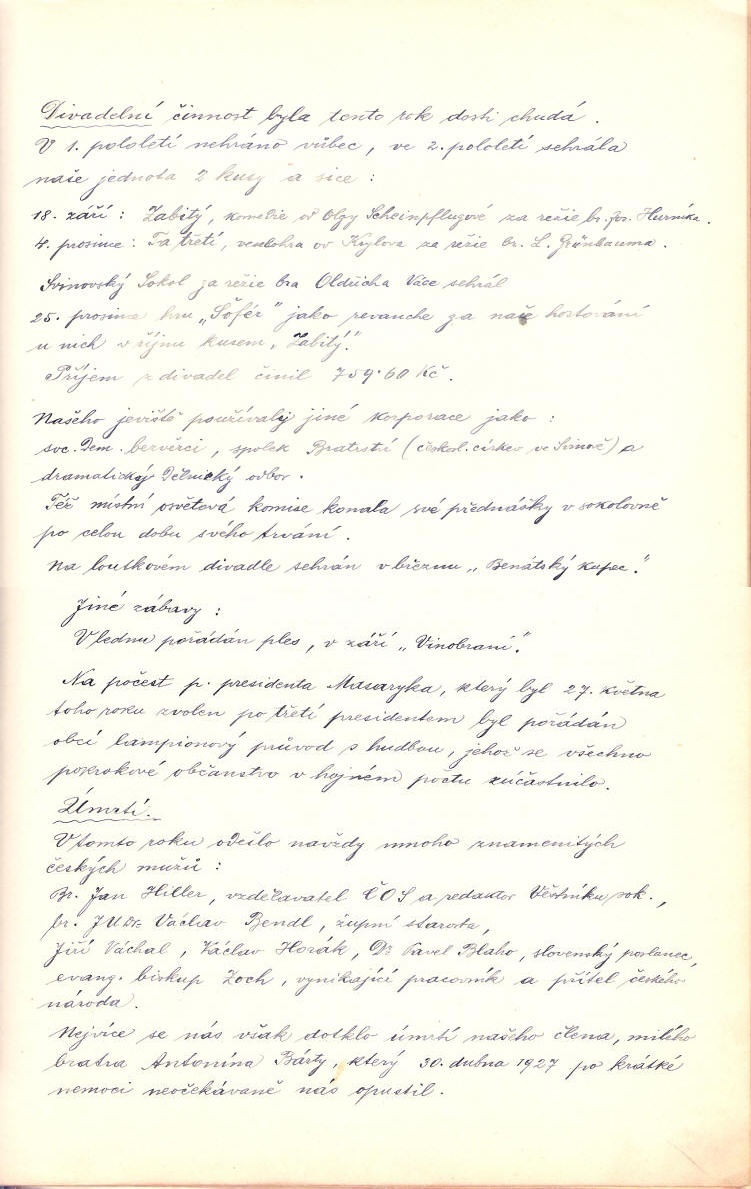 Divadelní činnost byla tento rok dosti chudá.
V 1. pololetí nehráno vůbec, ve 2. pololetí sehrála
naše jednota 2 kusy a sice:
18. září: Zabitý, komedie od Olgy Scheinpflugové za režie br. Jos. Hurníka.
4. prosince: Ta třetí, veselohra od Krylova za režie br. L. Grünbauma.
Svinovský Sokol za režie bra Oldřicha Váce sehrál
25. prosince hru „Šofér" jako revanche za naše hostování
u nich v říjnu kusem „Zabitý".
Příjem z divadel činil 759·60 Kč.
Našeho jeviště používaly jiné korporace jako:
soc. dem. bezvěrci, spolek Bratrství (českosl. církev ve Svinově) a
dramatický Dělnický odbor.
Též místní osvětová komise konala své přednášky v sokolovně
po celou dobu svého trvání.
Na loutkovém divadle sehrán v březnu „Benátský kupec."
Jiné zábavy:
V lednu pořádán ples, v září „Vinobraní".
Na počest p. presidenta Masaryka, který byl 27. května
toho roku zvolen po třetí presidentem byl pořádán
obcí lampionový průvod s hudbou, jehož se všechno
pokrokové občanstvo v hojném počtu zúčastnilo.
Úmrtí.
V tomto roku odešlo navždy mnoho znamenitých
českých mužů:
Br. Jan Hiller, vzdělavatel ČOS a redaktor Věstníku sok.,
br. JUDr. Václav Bendl, župní starosta,
Jiří Váchal, Václav Horák, Dr Pavel Blaho, slovenský poslanec,
evang. biskup Zoch, vynikající pracovník a přítel českého
národa.
Nejvíce se nás však dotklo úmrtí našeho člena, milého
bratra Antonína Bárty, který 30. dubna 1927 po krátké
nemoci neočekávaně nás opustil.